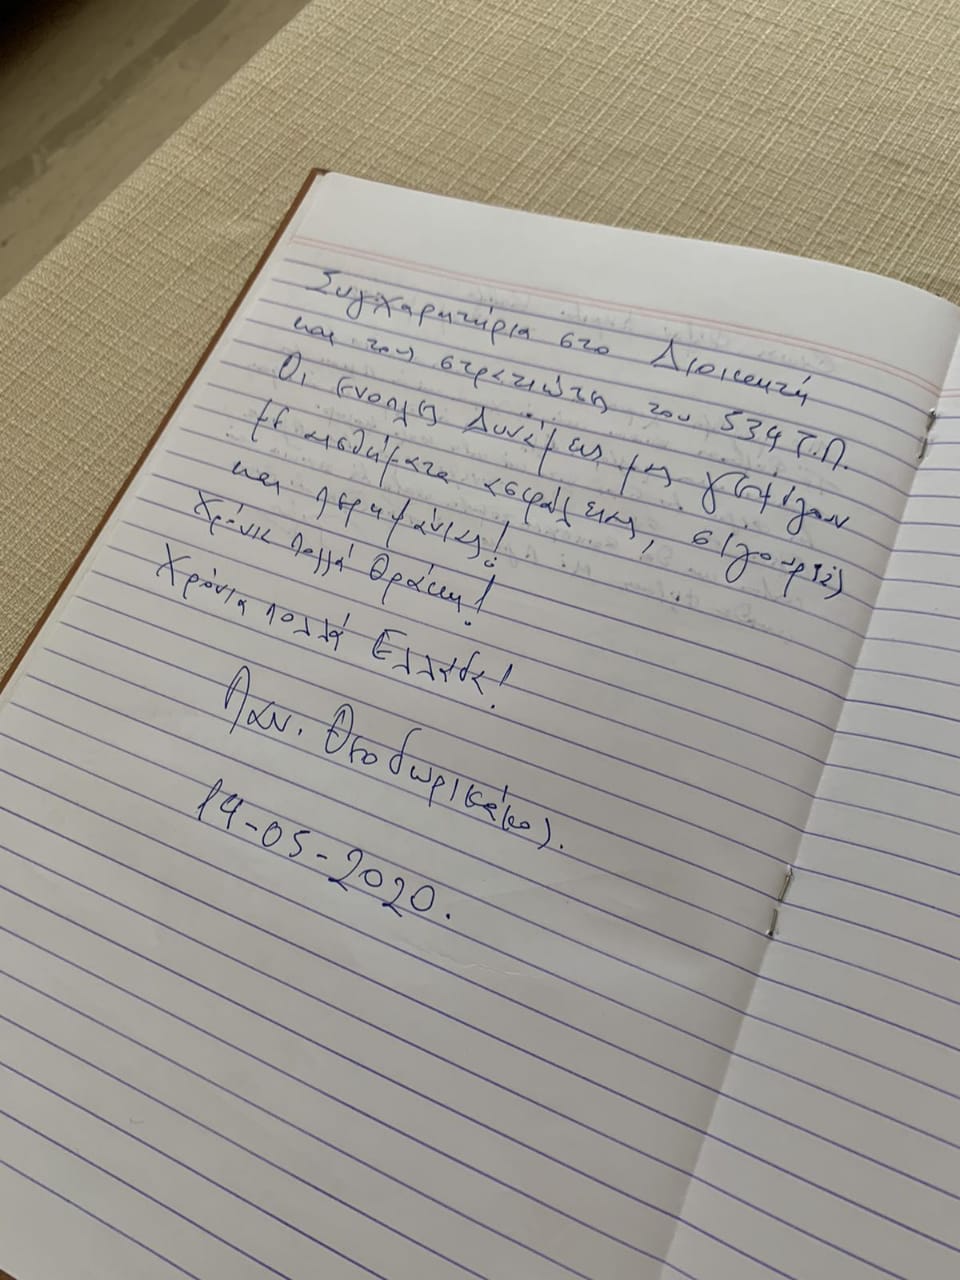 Συγχαρητήρια στο Διοικητή
και τους στρατιώτες του 534 Τ.Π.
Οι ένοπλες Δυνάμεις μας γεμίζουν
με αισθήματα ασφάλειας, σιγουριάς
και περηφάνιας!
Χρόνια πολλά Θράκη!
Χρόνια πολλά Ελλάδα!
Παν. Θεοδωρικάκος.
14-05-2020.